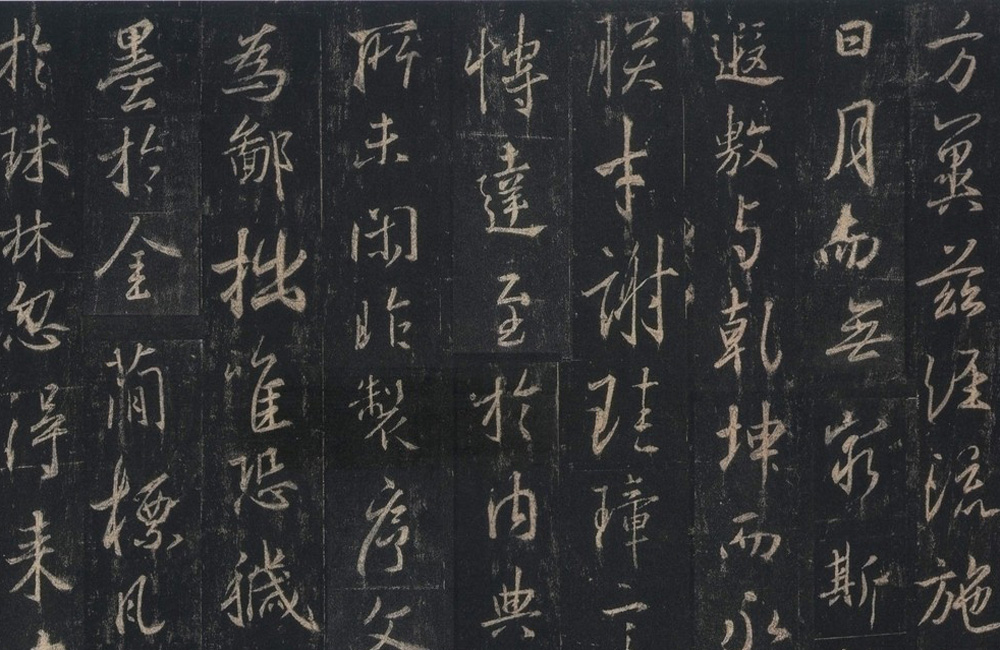 方冀茲經流施
日月而无窮斯
遐敷与乾坤而永
朕才謝珪璋言
博達至於内典
所未閑昨製序文
為鄙拙唯恐穢
墨於金簡標瓦
於珠林忽得来